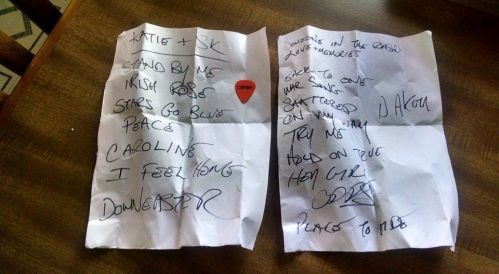 KATIE + SK
STAND BY ME
IRISH ROSE
STARS GO BLUE
PEACE
CAROLINE
I FEEL HOME
DOWNEASTER
SOMEONE IN THE ROAD
LOVE + MEMORIES
BACK TO ONE
WAR SONG
SHATTERED
ON MY WAY
TRY ME
HOLD ON TRUE
HEY GIRL
PLACE TO HIDE